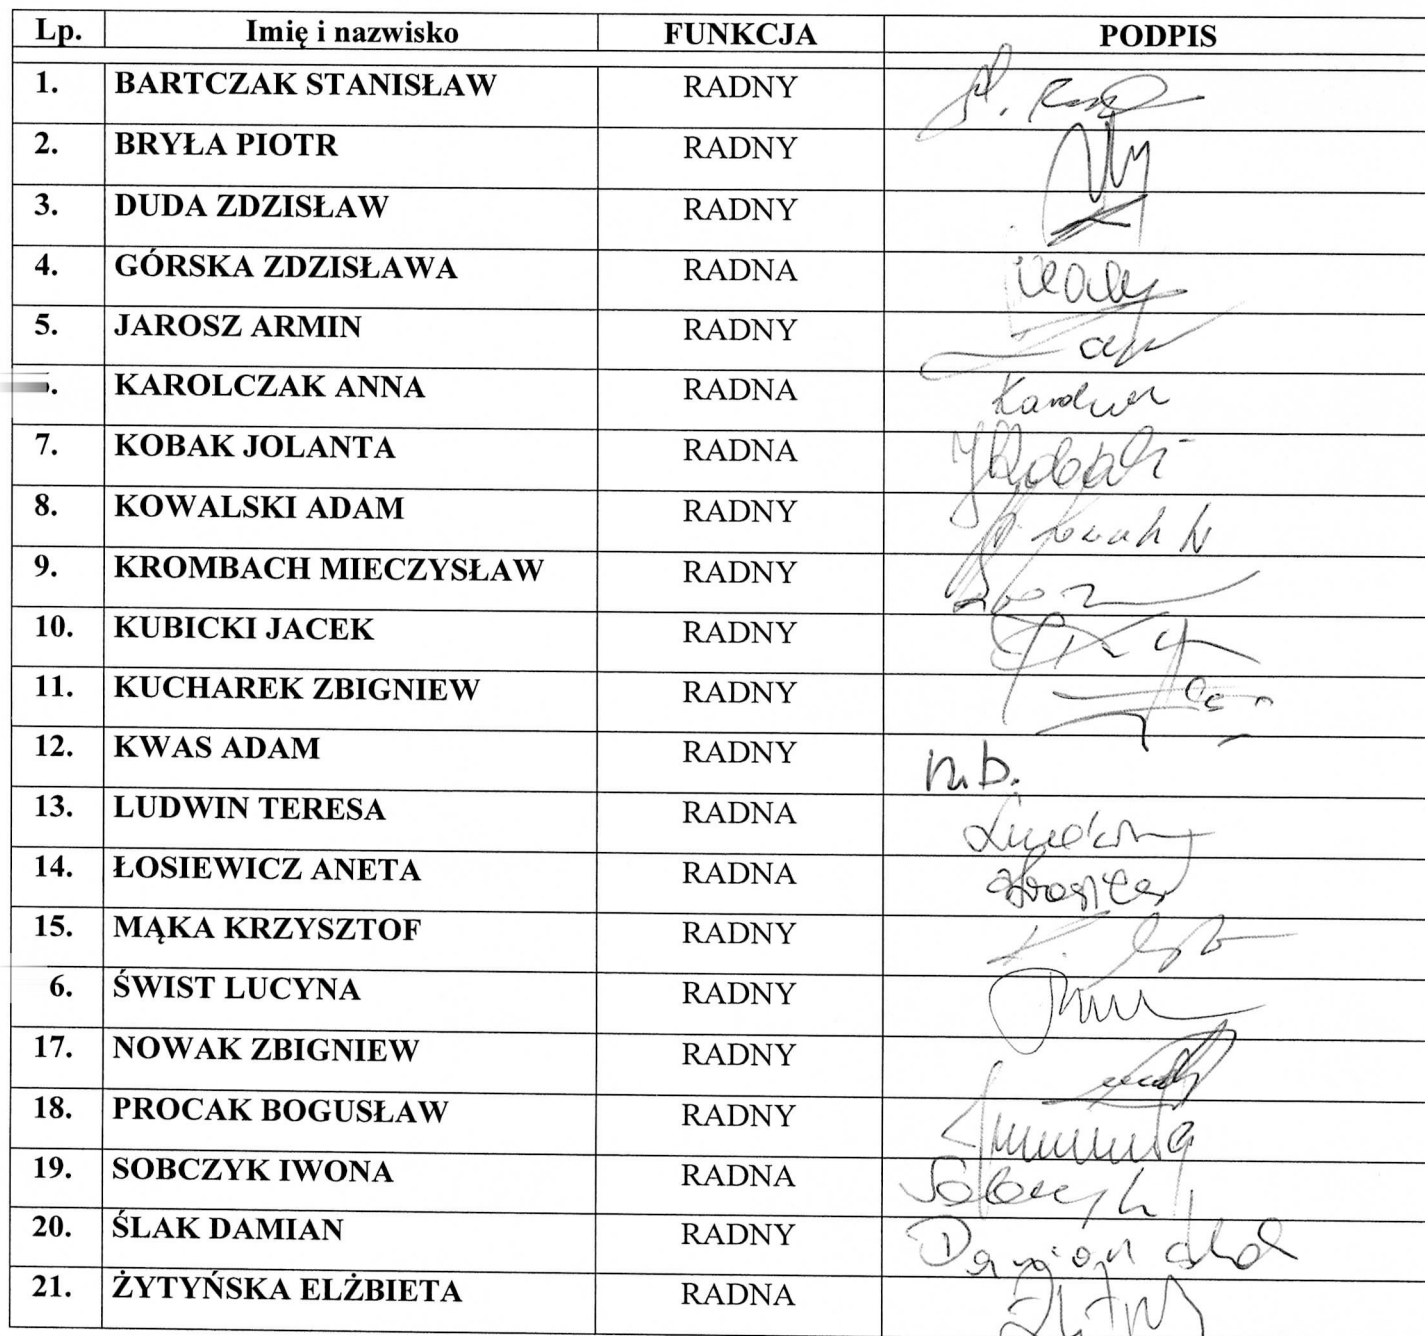 Lp. Imię i nazwisko FUNKCJA PODPIS
1. BARTCZAK STANISŁAW RADNY
2. BRYŁA PIOTR RADNY
3. DUDA ZDZISŁAW RADNY
4. GÓRSKA ZDZISŁAWA RADNA
5. JAROSZ ARMIN RADNY
. KAROLCZAK ANNA RADNA
7. KOBAK JOLANTA RADNA
8. KOWALSKI ADAM RADNY
9. KROMBACH MIECZYSŁAW RADNY
10. KUBICKI JACEK RADNY
11. KUCHAREK ZBIGNIEW RADNY
12. KWAS ADAM RADNY n.b.
13. LUDWIN TERESA RADNA
14. ŁOSIEWICZ ANETA RADNA
15. MĄKA KRZYSZTOF RADNY
6. ŚWIST LUCYNA RADNY
17. NOWAK ZBIGNIEW RADNY
18. PROCAK BOGUSŁAW RADNY
19. SOBCZYK IWONA RADNA Sobczyk
20. ŚLAK DAMIAN RADNY Damian
21. ŻYTYŃSKA ELŻBIETA RADNA